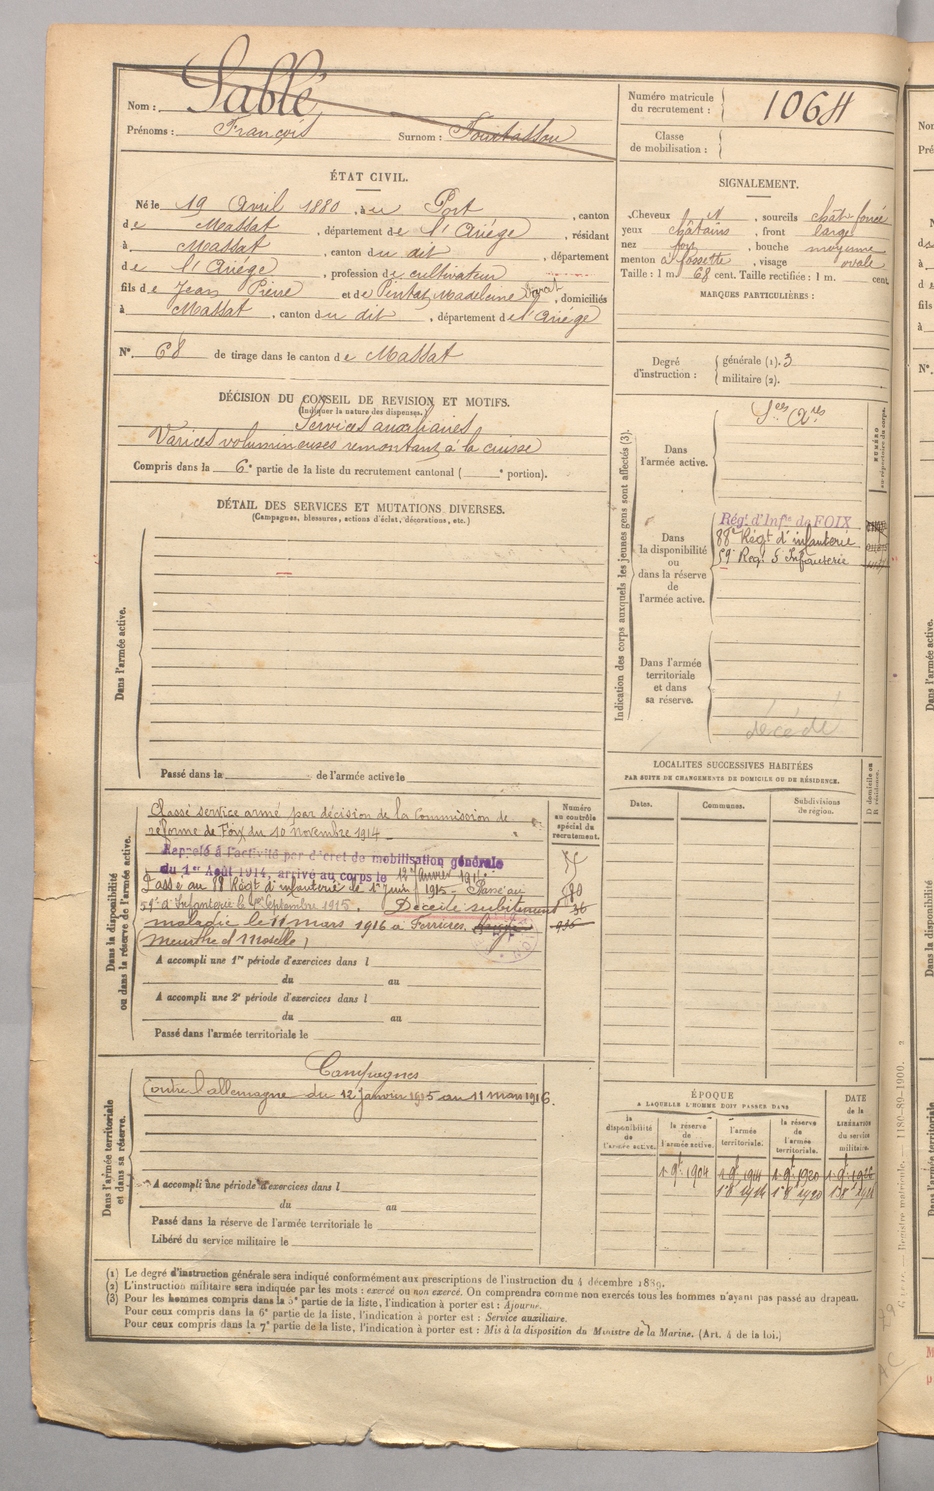 Nom : Sablé
Prénoms : François Surnom : Fourtassou
Numéro matricule du recrutement : 1064
Classe de mobilisation :
ÉTAT CIVIL.
Né le 19 Avril 1880, au Port, canton
de Massat, département de l'Ariége, résidant
à Massat, canton du dit, département
de l'Ariége, profession de cultivateur
fils de Jean Pierre et de Pintat Madeleine, domiciliés
à Massat, canton du dit, département de l'Ariége
N° 68 de tirage dans le canton de Massat
SIGNALEMENT.
Cheveux, sourcils chât-foncé
yeux châtains, front large
nez, bouche moyenne
menton à fossette, visage ovale
Taille : 1 m. 68 cent. Taille rectifiée : 1 m. cent.
MARQUES PARTICULIÈRES :
Degré d'instruction : générale (1). 3
militaire (2).
DÉCISION DU CONSEIL DE REVISION ET MOTIFS.
(Indiquer la nature des dispenses.)
Services auxiliaires
Varices volumineuses remontant à la cuisse
Compris dans la 6e partie de la liste du recrutement cantonal ( e portion).
DÉTAIL DES SERVICES ET MUTATIONS DIVERSES.
(Campagnes, blessures, actions d'éclat, décorations, etc.)
Dans l'armée active.
Passé dans la de l'armée active le
Indication des corps auxquels les jeunes gens sont affectés (3).
NUMÉRO au répertoire du corps.
Dans l'armée active.
Ses Ares
Dans la disponibilité ou dans la réserve de l'armée active.
Rég. d'Infie de FOIX
88e Régt d'infanterie
59e Regt d'Infanterie
Dans l'armée territoriale et dans sa réserve.
décédé
LOCALITES SUCCESSIVES HABITÉES
PAR SUITE DE CHANGEMENTS DE DOMICILE OU DE RÉSIDENCE.
Dates. Communes. Subdivisions de région. D domicile ou R résidence.
Dans la disponibilité ou dans la réserve de l'armée active.
Numéro au contrôle spécial du recrutement.
Classé service armé par décision de la Commission de
réforme de Foix du 10 novembre 1914
Rappelé à l'activité par décret de mobilisation générale
du 1er Août 1914, arrivé au corps le 12 Janvier 191
Passé au 88 Régt d'infanterie le 1er Juin 1915 - Passé au
59e d'Infanterie le 1er Septembre 1915. Décédé subitement
maladie le 11 mars 1916 à Ferrières
(Meurthe et Moselle)
A accompli une 1re période d'exercices dans l
du au
A accompli une 2e période d'exercices dans l
du au
Passé dans l'armée territoriale le
Dans l'armée territoriale et dans sa réserve.
Campagnes
Contre l'allemagne du 12 Janvier 1915 au 11 mars 1916.
A accompli une période d'exercices dans l
du au
Passé dans la réserve de l'armée territoriale le
Libéré du service militaire le
ÉPOQUE
A LAQUELLE L'HOMME DOIT PASSER DANS
la disponibilité de l'armée active. la réserve de l'armée active. l'armée territoriale. la réserve de l'armée territoriale.
DATE de la LIBÉRATION du service militaire.
1 9bre 1904
(1) Le degré d'instruction générale sera indiqué conformément aux prescriptions de l'instruction du 4 décembre 1889.
(2) L'instruction militaire sera indiquée par les mots : exercé ou non exercé. On comprendra comme non exercés tous les hommes n'ayant pas passé au drapeau.
(3) Pour les hommes compris dans la 5e partie de la liste, l'indication à porter est : Ajourné.
Pour ceux compris dans la 6e partie de la liste, l'indication à porter est : Service auxiliaire.
Pour ceux compris dans la 7e partie de la liste, l'indication à porter est : Mis à la disposition du Ministre de la Marine. (Art. 4 de la loi.)
Registre matricule. — 1180-89-1900.